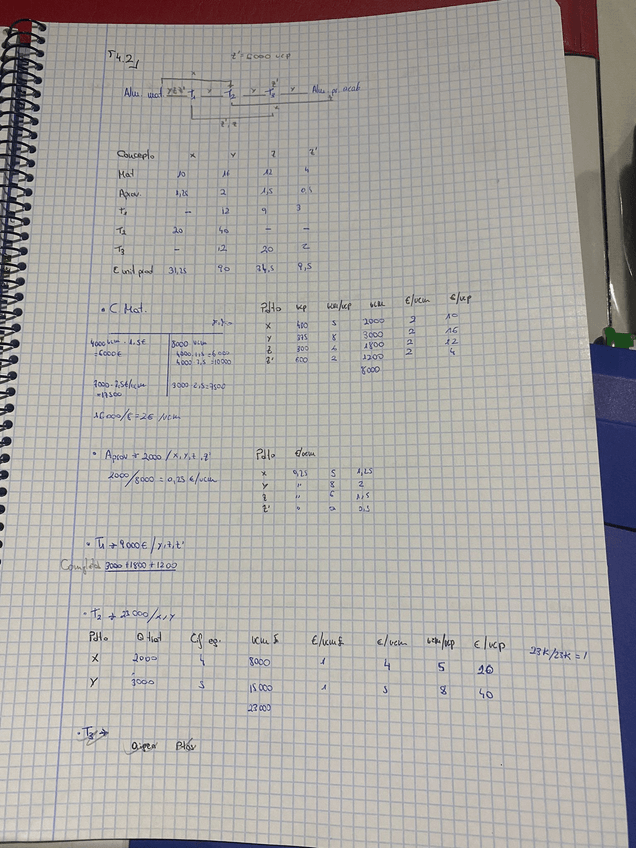 T4.2,
z' = 6000 ucp
x
Alm. mat yzz' T1 y T2 y T3 y Alm. pr. acab.
z'
x
z', z
Concepto x y z z'
Mat 10 16 12 4
Aprov. 1,25 2 1,5 0,5
T1 - 12 9 3
T2 20 40 - -
T3 - 12 20 2
C unit prod 31,25 90 74,5 9,5
• C. Mat.
Pdto ucp ucm/ucp ucm €/ucm €/ucp
X 400 5 2000 2 10
Y 375 8 3000 2 16
Z 300 6 1800 2 12
Z' 600 2 1200 2 4
8000
4000 ucm · 1,5€
= 6000€
8000 ucm
4000 · 1,5 = 6000
4000 · 2,5 = 10000
7000 · 2,5€/ucm
= 17500
3000 · 2,5 = 7500
• Aprov → 2000 / x, y, z, z'
2000/8000 = 0,25 €/ucm
Pdto €/ucm
X 0,25 5 1,25
Y " 8 2
Z " 6 1,5
Z' " 2 0,5
• T1 → 9000€ / y, z, z'
Completar 3000 + 1800 + 1200
• T2 → 23000 / x, y
Pdto Q trat Cf eq. ucm h €/ucm h €/ucm ucm/ucp €/ucp
X 2000 4 8000 1 4 5 20
Y 3000 5 15000 1 5 8 40
23000
23K/23K = 1
• T3 →